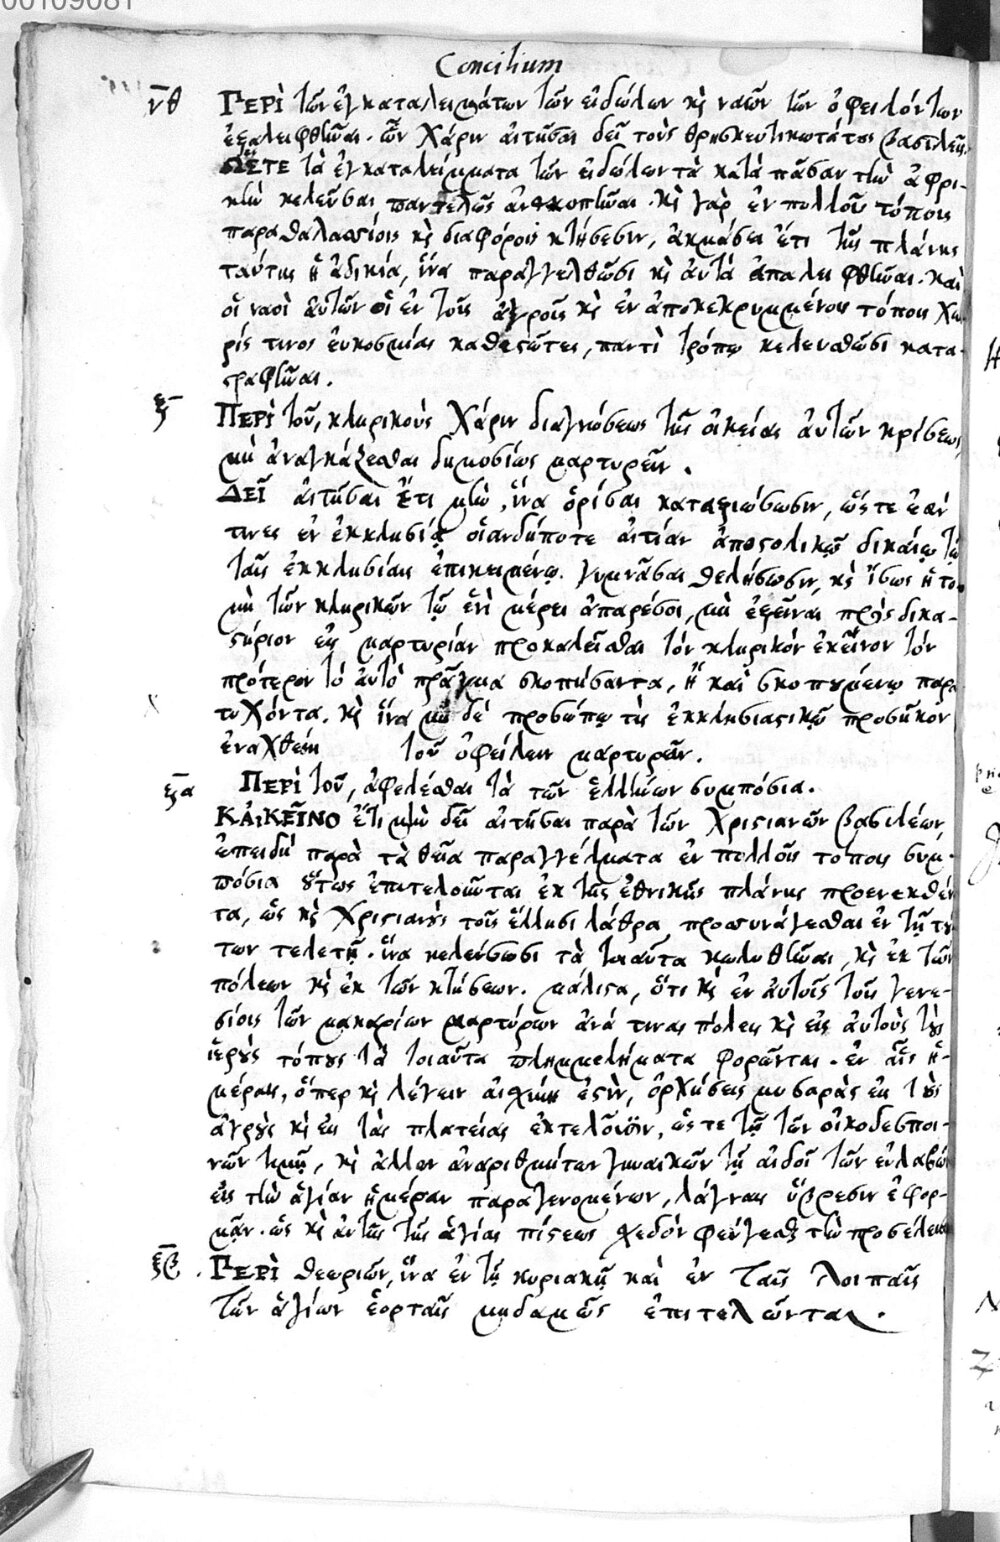 00109081
Concilium
νθ ΠΕΡῚ τῶν ἐγκαταλειμμάτων τῶν εἰδώλων κὶ ναῶν τῶν ὀφειλόντων
ἐξαλειφθῆναι. ὧν χάριν αἰτῆσαι δεῖ τοὺς θρησκευτικωτάτους βασιλεῖς
ὭΣΤΕ τὰ ἐγκαταλείμματα τῶν εἰδώλων τὰ κατὰ πᾶσαν τὴν ἀφρι-
κὴν κελεῦσαι παντελῶς ἀνακοπῆναι. κὶ γὰρ ἐν πολλοῖς τόποις
παραθαλασσίοις κὶ διαφόροις κτήσεσιν, ἀκμάζει ἔτι τῆς πλάνης
ταύτης ἡ ἀδικία, ἵνα παραγγελθῶσι κὶ αὐτὰ ἀπαλειφθῆναι. καὶ
οἱ ναοὶ αὐτῶν οἱ ἐν τοῖς ἀγροῖς κὶ ἐν ἀποκεκρυμμένοις τόποις χω-
ρίς τινος εὐκοσμίας καθεστῶτες, παντὶ τρόπῳ κελευσθῶσι κατα-
στραφῆναι.
ξ ΠΕΡῚ τοῦ, κληρικοὺς χάριν διαγνώσεως τῆς οἰκείας αὐτῶν κρίσεως,
μὴ ἀναγκάζεσθαι δημοσίως μαρτυρεῖν.
ΔΕΙ͂ αἰτῆσαι ἔτι μὴν, ἵνα ὁρίσαι καταξιώσωσιν, ὥστε ἐάν
τινες ἐν ἐκκλησίᾳ οἱανδήποτε αἰτίαν ἀποστολικῷ δικαίῳ τῷ
ταῖς ἐκκλησίαις ἐπικειμένῳ. γυμνᾶσαι θελήσωσιν, κὶ ἴσως ἡ το-
μὴ τῶν κληρικῶν τῷ ἑνὶ μέρει ἀπαρέσοι, μὴ ἐξεῖναι πρὸς δικα-
στήριον εἰς μαρτυρίαν προκαλεῖσθαι τὸν κληρικὸν ἐκεῖνον τὸν
πρότερον τὸ αὐτὸ πρᾶγμα σκοπήσαντα, ἢ καὶ σκοπουμένῳ παρα
τυχόντα. κὶ ἵνα μὴ δέ προσώπῳ τις ἐκκλησιαστικῷ προσῆκον
ἐναχθείη τοῦ ὀφείλειν μαρτυρεῖν.
ξα ΠΕΡῚ τοῦ, ἀφελέσθαι τὰ τῶν ἑλλήνων συμπόσια.
ΚἈΚΕΙ͂ΝΟ ἔτι μὴν δεῖ αἰτῆσαι παρὰ τῶν Χριστιανῶν βασιλέων,
ἐπειδὴ παρὰ τὰ θεῖα παραγγέλματα ἐν πολλοῖς τόποις συμ-
πόσια οὕτως ἐπιτελοῦνται ἐκ τῆς ἐθνικῆς πλάνης προενεχθέν
τα, ὡς κὶ Χριστιανοὺς τοῖς ἕλλησι λάθρα προσυνάγεσθαι ἐν τῇ τού
των τελετῇ. ἵνα κελεύσωσι τὰ τοιαῦτα κωλυθῆναι, κὶ ἐκ τῶν
πόλεων κὶ ἐκ τῶν κτήσεων. μάλιστα, ὅτι κὶ ἐν αὐτοῖς τοῖς γενε-
σίοις τῶν μακαρίων μαρτύρων ἀνά τινας πόλεις κὶ εἰς αὐτοὺς τοὺς
ἱεροὺς τόπους τὰ τοιαῦτα πλημμελήματα φορῶνται. ἐν αἷς ἡ-
μέραις, ὅπερ κὶ λέγειν αἰσχύνη ἐστὶν, ὀρχήσεις μυσαρὰς εἰς τοὺς
ἀγροὺς κὶ εἰς τὰς πλατείας ἐκτελοῦσιν, ὥστε τῇ τῶν οἰκοδεσποι-
νῶν τιμῇ, κὶ ἄλλων ἀναριθμήτων γυναικῶν τῇ αἰδοῖ τῶν εὐλαβῶς
εἰς τὴν ἁγίαν ἡμέραν παραγενομένων, λάγναις ὕβρεσιν ἐφορ-
μᾷν. ὡς κὶ αὐτῆς τῆς ἁγίας πίστεως σχεδὸν φεύγεσθαι τὴν προσέλευσιν
ξβ. ΠΕΡῚ θεωριῶν, ἵνα ἐν τῇ κυριακῇ καὶ ἐν ταῖς λοιπαῖς
τῶν ἁγίων ἑορταῖς μηδαμῶς ἐπιτελῶνται.